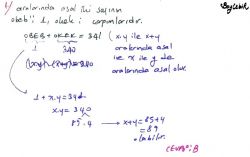 aralarında asal iki sayının
obeb'i 1, okek'i çarpımlarıdır.
OBEB + OKEK = 341
1 340
x.y ile x+y
aralarında asal
ise x ile y de
aralarında asal olur.
1 + x.y = 341
x.y = 340
85 . 4
x+y = 85+4
= 89
olabilir.
CEVAP: B